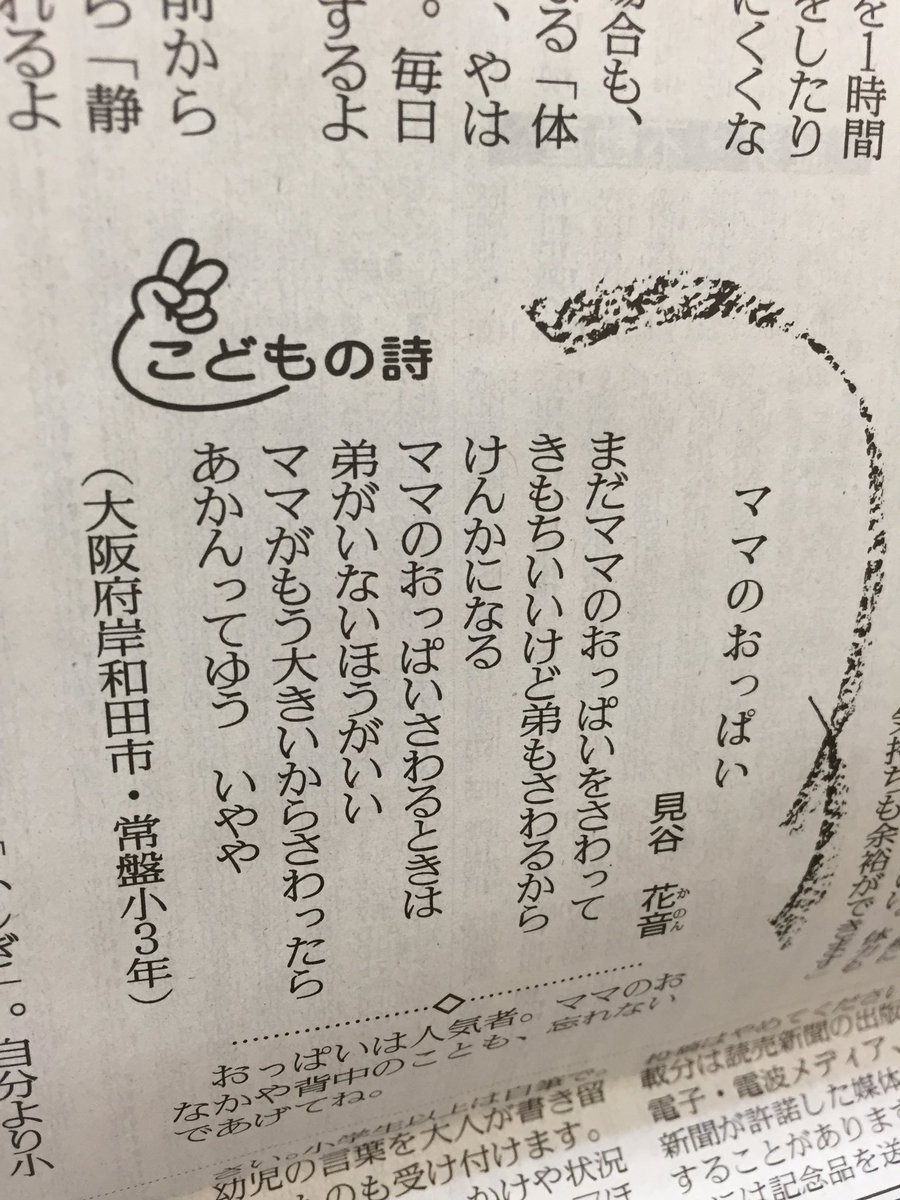 を1時間
をしたり
にくくな
場合も、
る「体
、やは
。毎日
するよ
前から
「静
れるよ
こどもの詩
ママのおっぱい
見谷 花音
かのん
まだママのおっぱいをさわって
きもちいいけど弟もさわるから
けんかになる
ママのおっぱいさわるときは
弟がいないほうがいい
ママがもう大きいからさわったら
あかんってゆう いやや
（大阪府岸和田市・常盤小３年）
おっぱいは人気者。ママのお
なかや背中のことも、忘れない
であげてね。
さい。小学生以上は自筆で。
幼児の言葉を大人が書き留
のも受け付けます。
かけや状況
はやめてください
載分は読売新聞の出版
電子・電波メディア、
新聞が許諾した媒体
することがあります
には記念品を送
気持ちも余裕ができます」
。自分より小